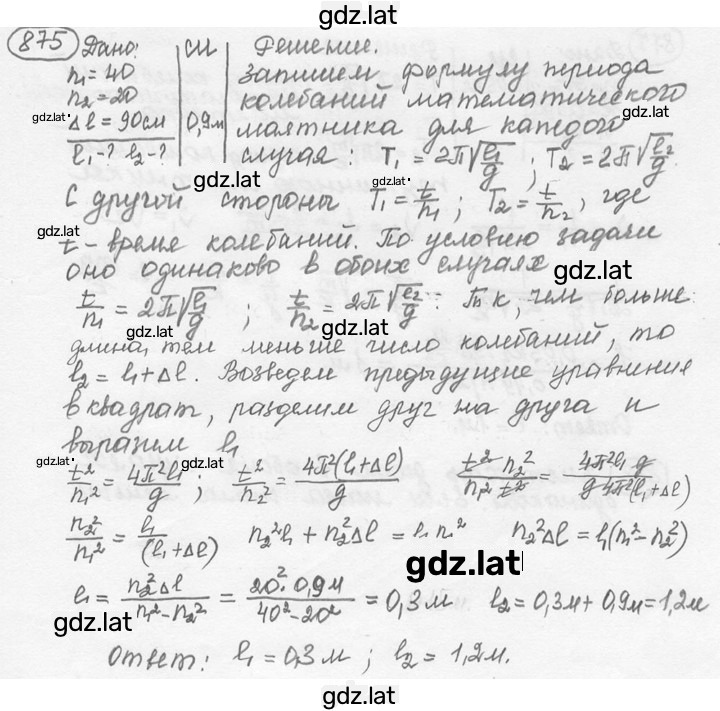 gdz.lat
875 Дано: СИ Решение.
n₁=40 Запишем формулу периода
n₂=20 колебаний математического
gdz.lat
Δl=90см 0,9м маятника для каждого
l₁-? l₂-? случая: T₁=2π√(l₁/g); T₂=2π√(l₂/g).
gdz.lat
С другой стороны T₁=t/n₁; T₂=t/n₂, где
gdz.lat
t - время колебаний. По условию задачи
gdz.lat
оно одинаково в обоих случаях
gdz.lat
t/n₁=2π√(l₁/g); t/n₂=2π√(l₂/g). Т.к, чем больше
gdz.lat
длина, тем меньше число колебаний, то
l₂=l₁+Δl. Возведем предыдущие уравнения
в квадрат, разделим друг на друга и
выразим l₁
gdz.lat
t²/n₁²=4π²l₁/g; t²/n₂²=4π²(l₁+Δl)/g t² n₂²/n₁² t² 4π²l₁ g/g 4π²(l₁+Δl)
gdz.lat
n₂²/n₁²=l₁/(l₁+Δl) n₂²l₁+n₂²Δl=l₁n₁² n₂²Δl=l₁(n₁²-n₂²)
gdz.lat
l₁=n₂²Δl/n₁²-n₂²=20²·0,9м/40²-20²=0,3м l₂=0,3м+0,9м=1,2м
gdz.lat
gdz.lat
Ответ: l₁=0,3м; l₂=1,2м.
gdz.lat